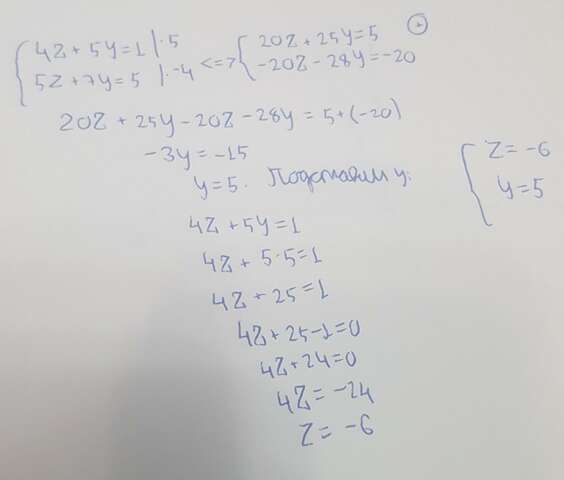 4z + 5y = 1 | · 5
5z + 7y = 5 | · -4
<=>
20z + 25y = 5
-20z - 28y = -20
+
20z + 25y - 20z - 28y = 5 + (-20)
-3y = -15
y = 5. Подставим y:
4z + 5y = 1
4z + 5·5 = 1
4z + 25 = 1
4z + 25 - 1 = 0
4z + 24 = 0
4z = -24
z = -6
z = -6
y = 5